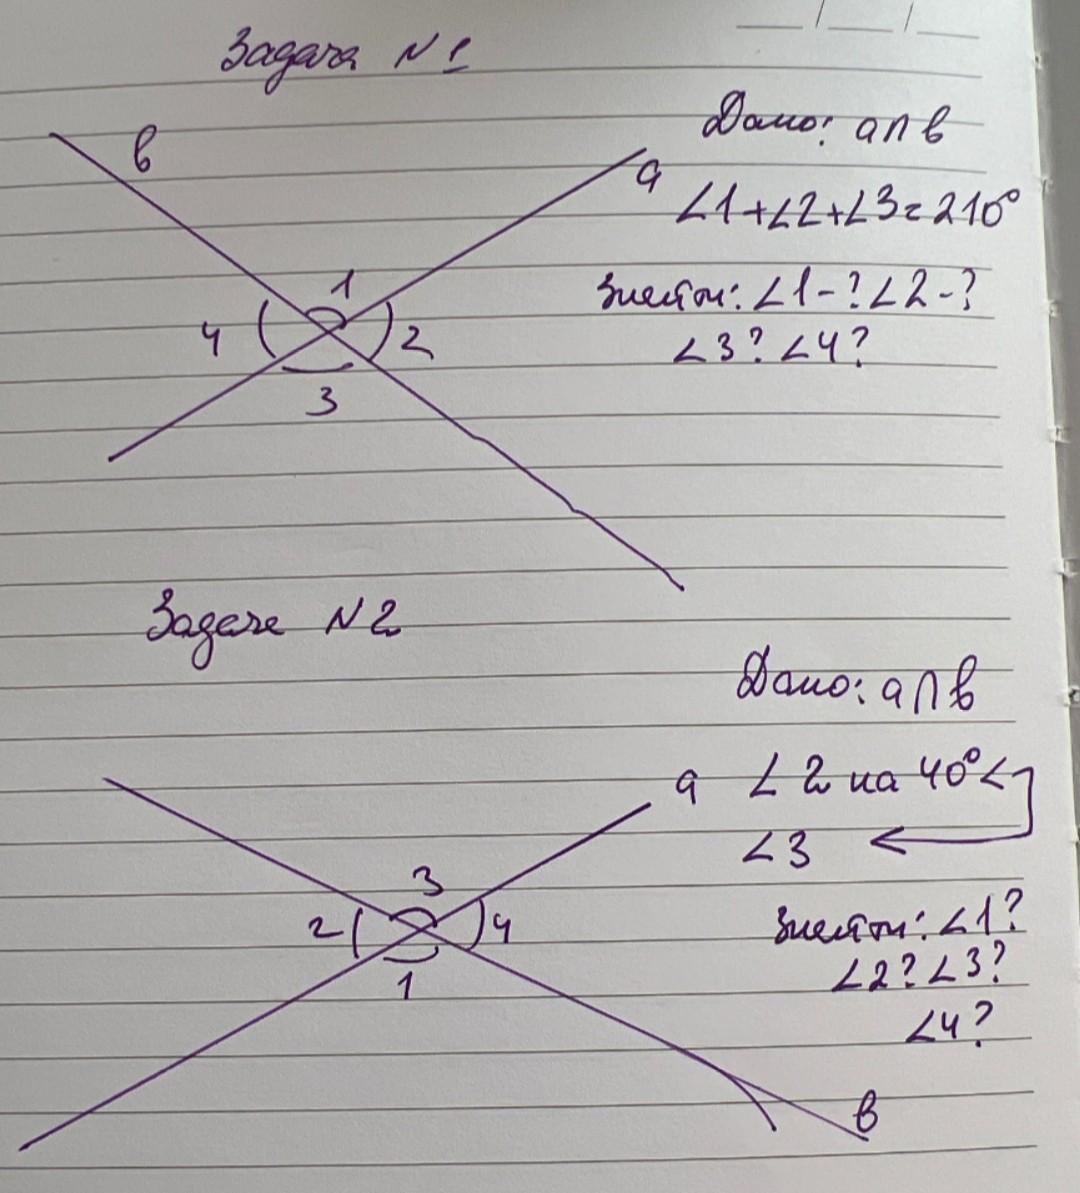 Задача N 1
в
а
Дано: a∩в
∠1+∠2+∠3=210°
Знайти: ∠1-? ∠2-?
∠3? ∠4?
1
4
2
3
Задача N2
Дано: a∩в
а
∠2 на 40° <
∠3
3
2
4
1
Знайти: ∠1?
∠2? ∠3?
∠4?
в